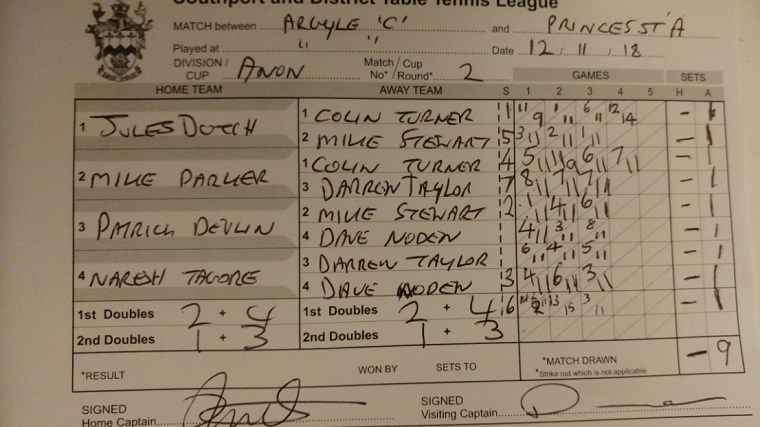 Southport and District Table Tennis League
MATCH between ARGYLE 'C' and PRINCESS T 'A'
Played at " " Date 12 / 11 / 18
DIVISION / CUP ANON Match / Cup No* / Round* 2
GAMES SETS
HOME TEAM AWAY TEAM S 1 2 3 4 5 H A
1 JULES DUTCH
1 COLIN TURNER 1 11 9 1 11 6 11 12 14 - 1
2 MIKE STEWART 5 3 11 2 11 1 11 - 1
2 MIKE PARKER
1 COLIN TURNER 4 5 11 11 9 6 11 7 11 - 1
3 DARREN TAYLOR 7 8 11 7 11 7 11 - 1
3 PATRICK DEVLIN
2 MIKE STEWART 2 1 11 4 11 6 11 - 1
4 DAVE NODEN 4 11 3 11 8 11 - 1
4 NARESH TAGORE
3 DARREN TAYLOR 6 11 4 11 5 11 - 1
4 DAVE NODEN 3 4 11 6 11 3 11 - 1
1st Doubles 2 + 4 1st Doubles 2 + 4 6 13 15 3 11 - 1
2nd Doubles 1 + 3 2nd Doubles 1 + 3
- 9
*RESULT WON BY SETS TO *MATCH DRAWN
*Strike out which is not applicable
SIGNED Home Captain
SIGNED Visiting Captain